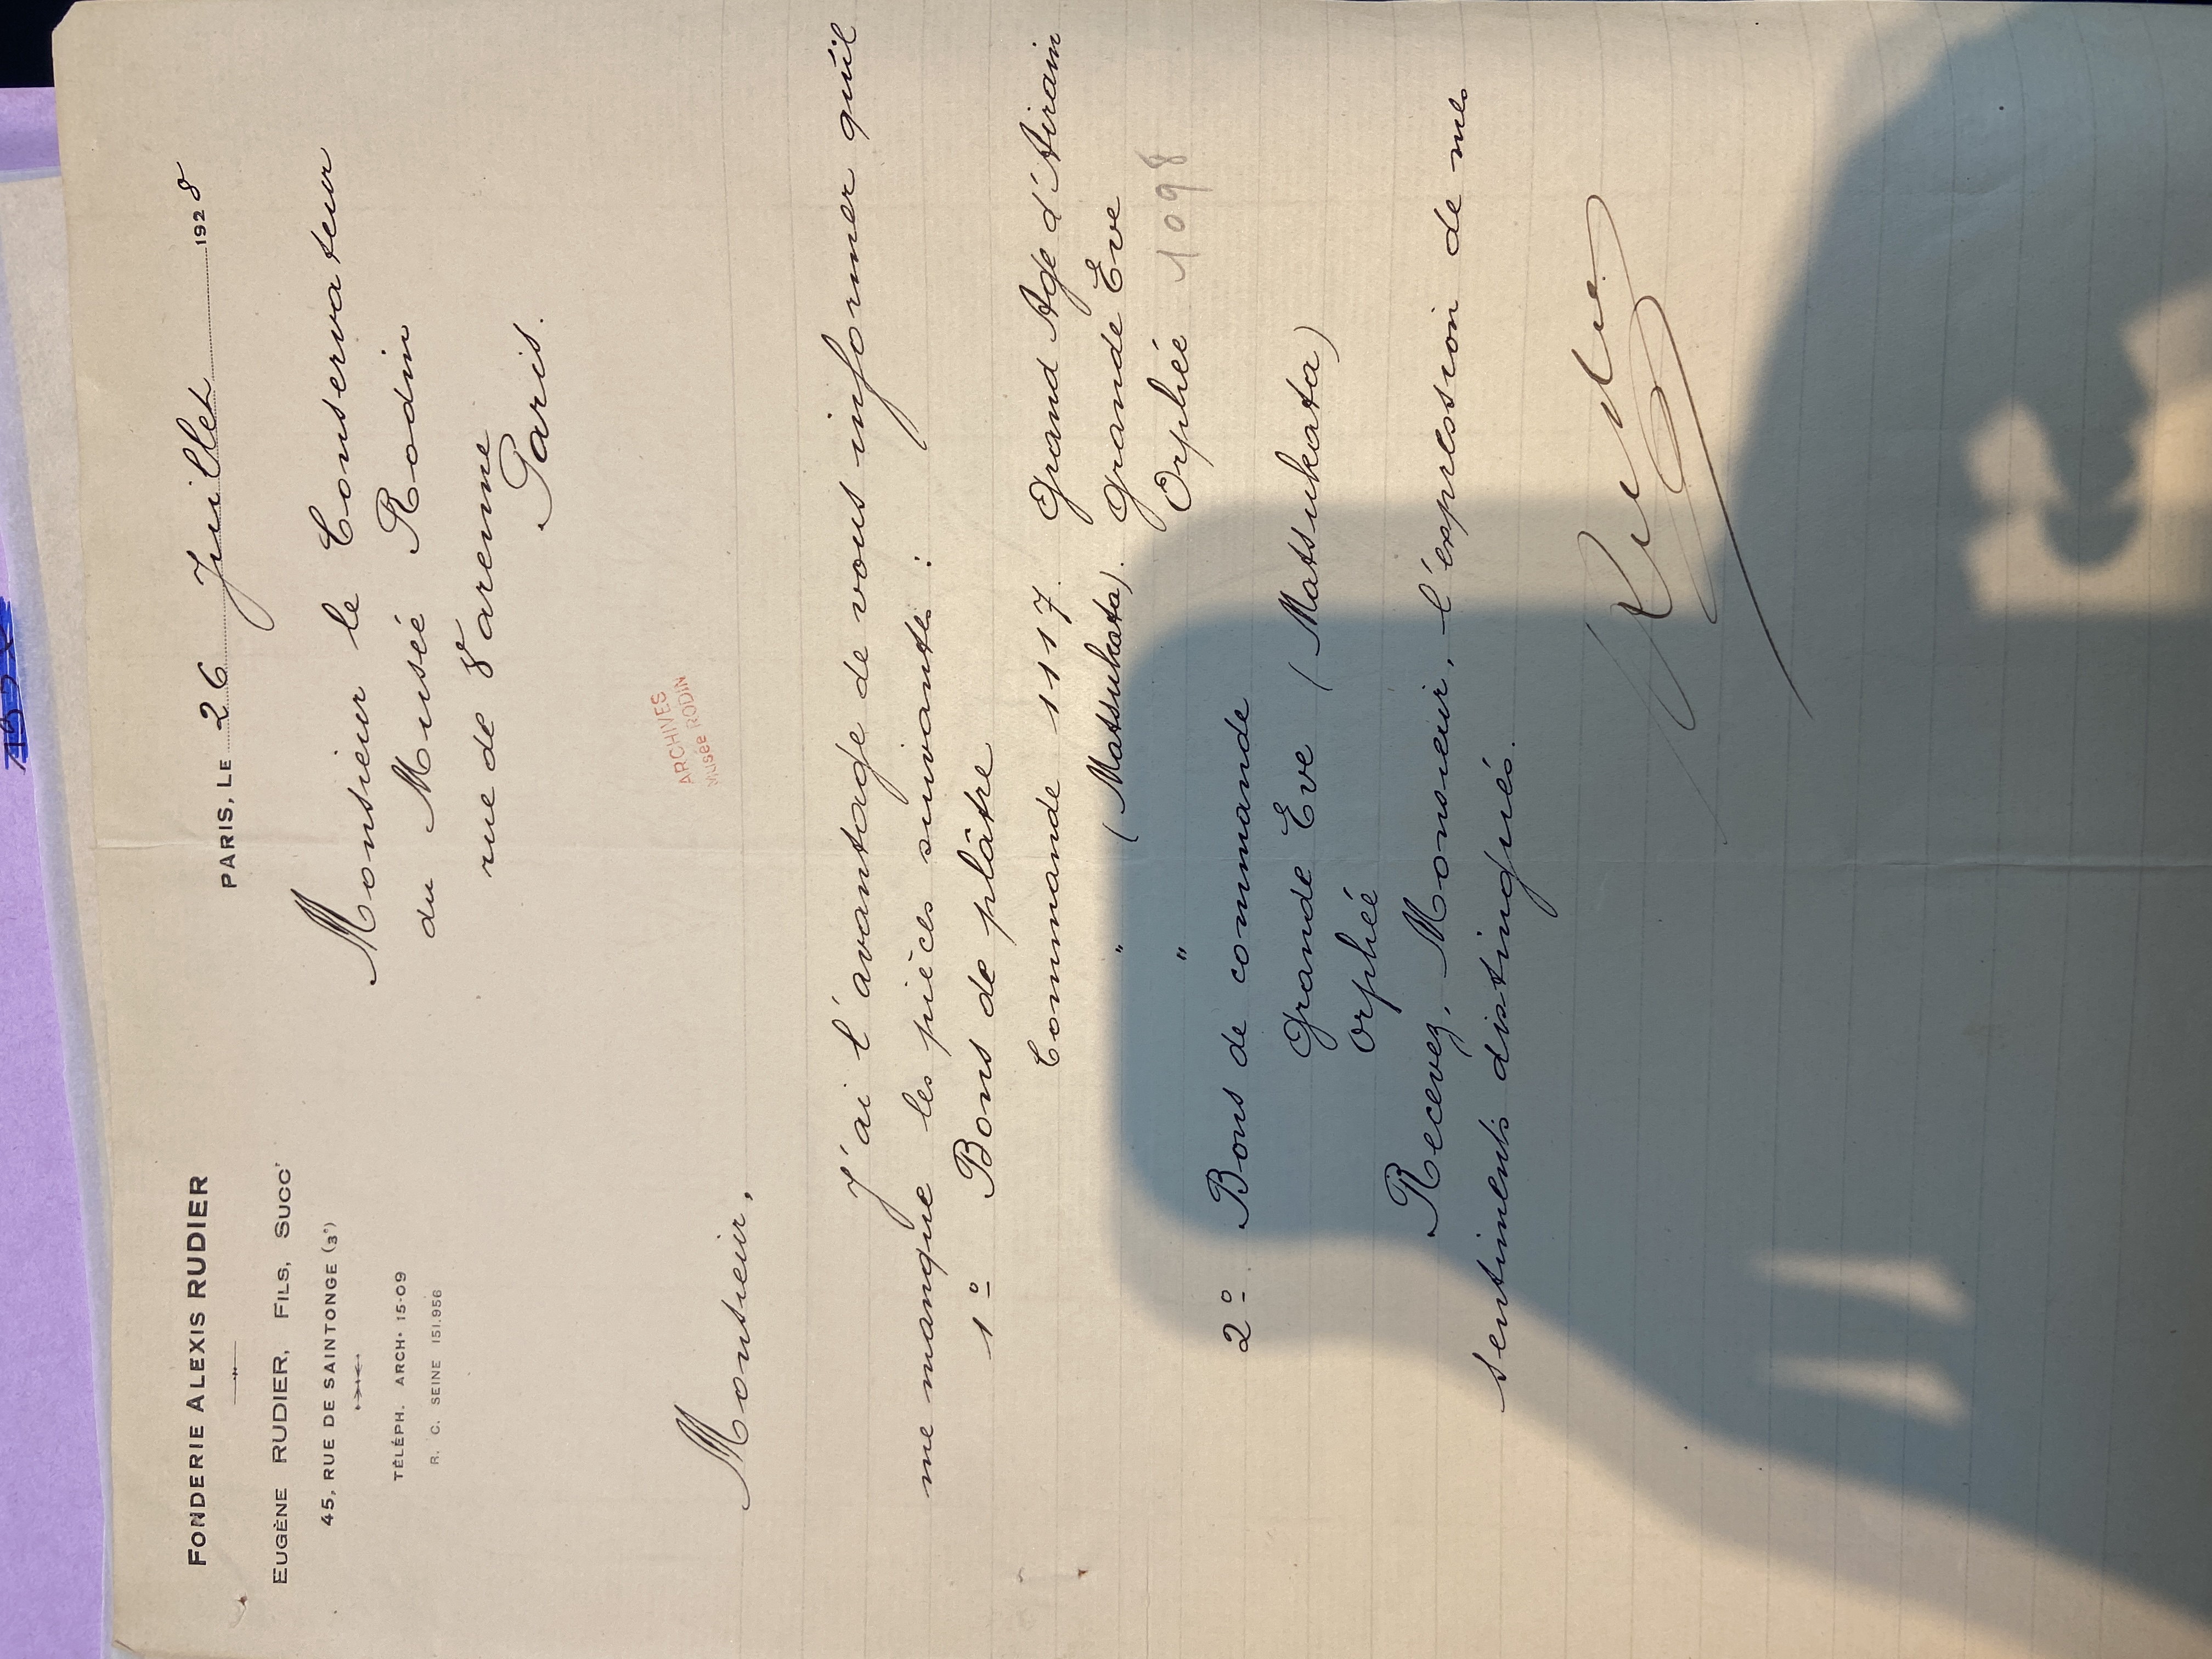 FONDERIE ALEXIS RUDIER
EUGÈNE RUDIER, FILS, SUCCr
45, RUE DE SAINTONGE (3e)
TÉLÉPH. ARCH. 15-09
R. C. SEINE 151.956
PARIS, LE 26 Juillet 1928
Monsieur le Conservateur
du Musée Rodin
rue de Varenne
Paris.
ARCHIVES
Musée RODIN
Monsieur,
J'ai l'avantage de vous informer qu'il
me manque les pièces suivantes :
1º Bons de plâtre
Commande 1117. Grand Age d'Airain
" (Matsukata). Grande Eve
" Orphée 1098
2º Bons de commande
Grande Eve (Matsukata)
Orphée
Recevez, Monsieur, l'expression de mes
sentiments distingués.
Rudier